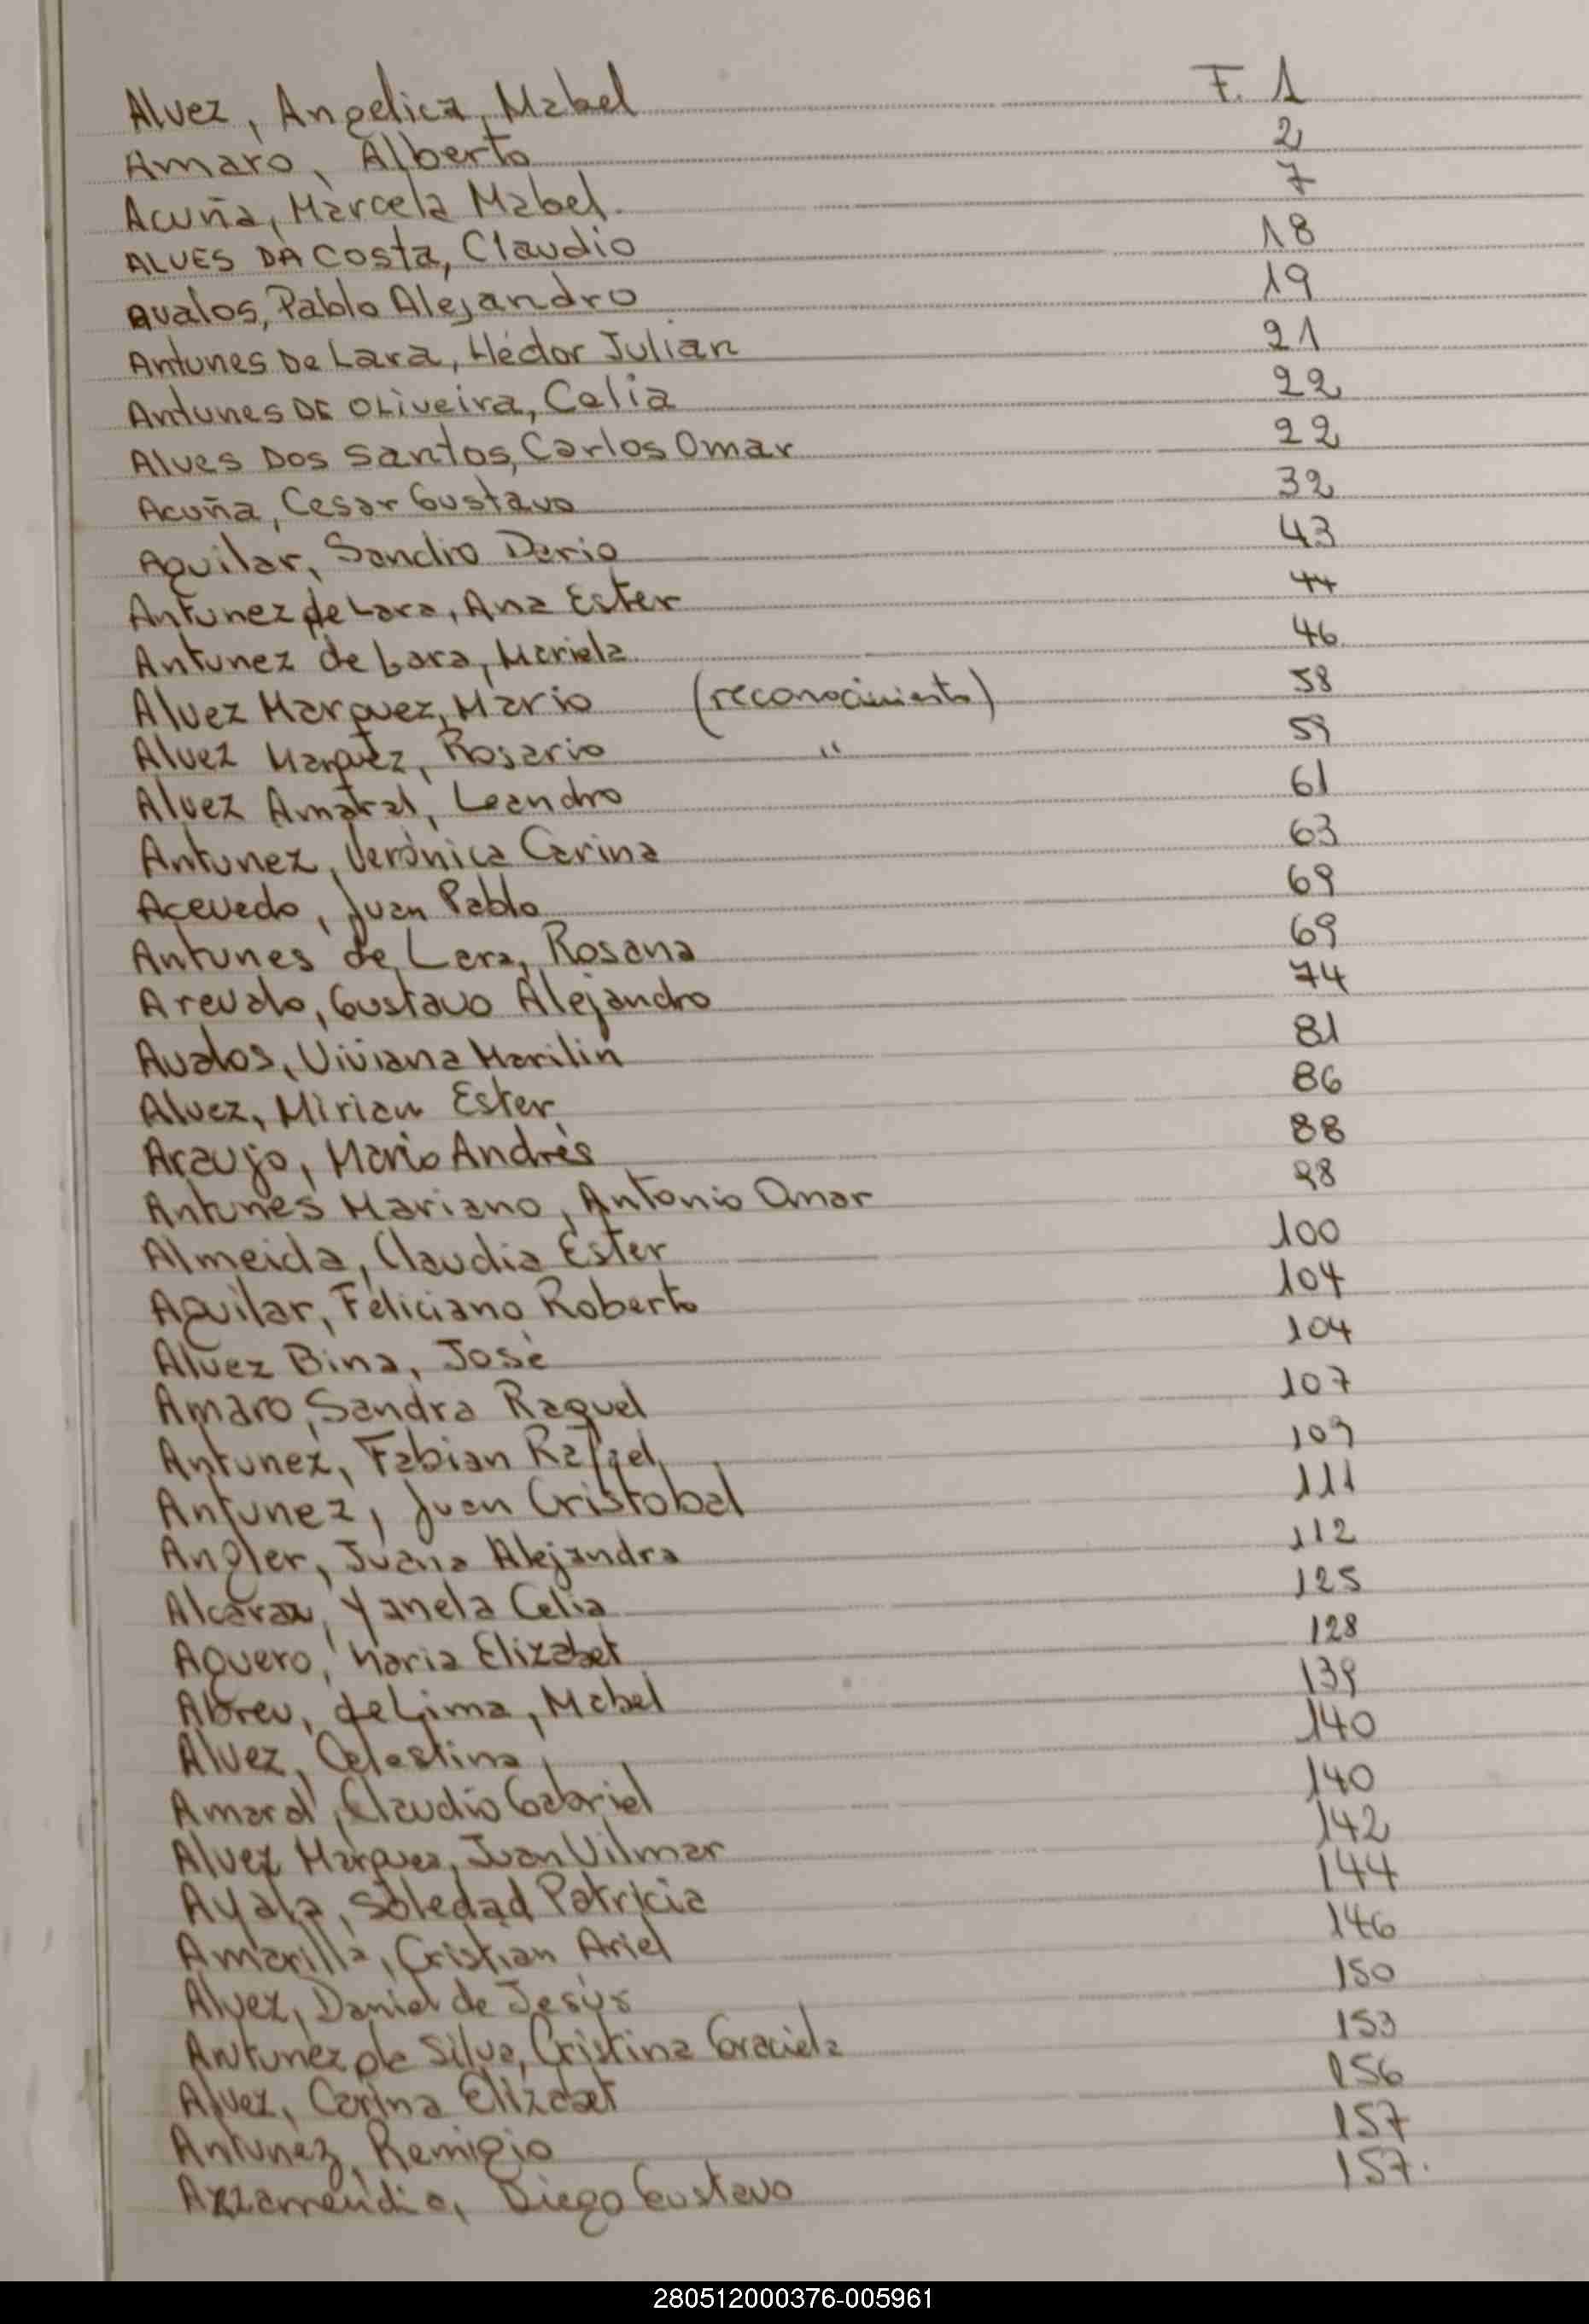 Alvez, Angelica, Mabel F. 1
Amaro, Alberto 2
Acuña, Marcela Mabel. 7
ALVES DA Costa, Claudio 18
avalos, Pablo Alejandro 19
Antunes De Lara, Héctor Julian 21
Antunes DE OLiveira, Celia 22
Alves Dos Santos, Carlos Omar 22
Acuña, Cesar Gustavo 32
Aguilar, Sandro Dario 43
Antunez de Lara, Ana Ester 44
Antunez de Lara, Mariela 46
Alvez Marquez, Mario (reconocimiento) 58
Alvez Marquez, Rosario " 59
Alvez Amaral, Leandro 61
Antunez, Verónica Carina 63
Acevedo, Juan Pablo 69
Antunes de Lara, Rosana 69
Arevalo, Gustavo Alejandro 74
Avalos, Viviana Marilin 81
Alvez, Mirian Ester 86
Araujo, Mario Andrés 88
Antunes Mariano, Antonio Omar 98
Almeida, Claudia Ester 100
Aguilar, Feliciano Roberto 104
Alvez Bina, José 104
Amaro, Sandra Raquel 107
Antunez, Fabian Rafael 109
Antunez, Juan Cristobal 111
Angler, Juana Alejandra 112
Alcaraz, Yanela Celia 125
Aguero, Maria Elizabet 128
Abreu, de Lima, Mabel 139
Alvez, Celestina 140
Amaral, Claudio Gabriel 140
Alvez Marquez, Juan Vilmar 142
Ayala, Soledad Patricia 144
Amarilla, Cristian Ariel 146
Alvez, Daniel de Jesús 150
Antunez de Silva, Cristina Graciela 153
Alvez, Carina Elizabet 156
Antunez, Remigio 157
Diego Gustavo 157.
280512000376-005961